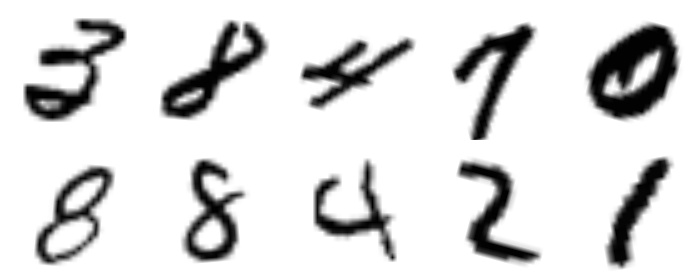 3 8 4 7 0
8 8 4 2 1